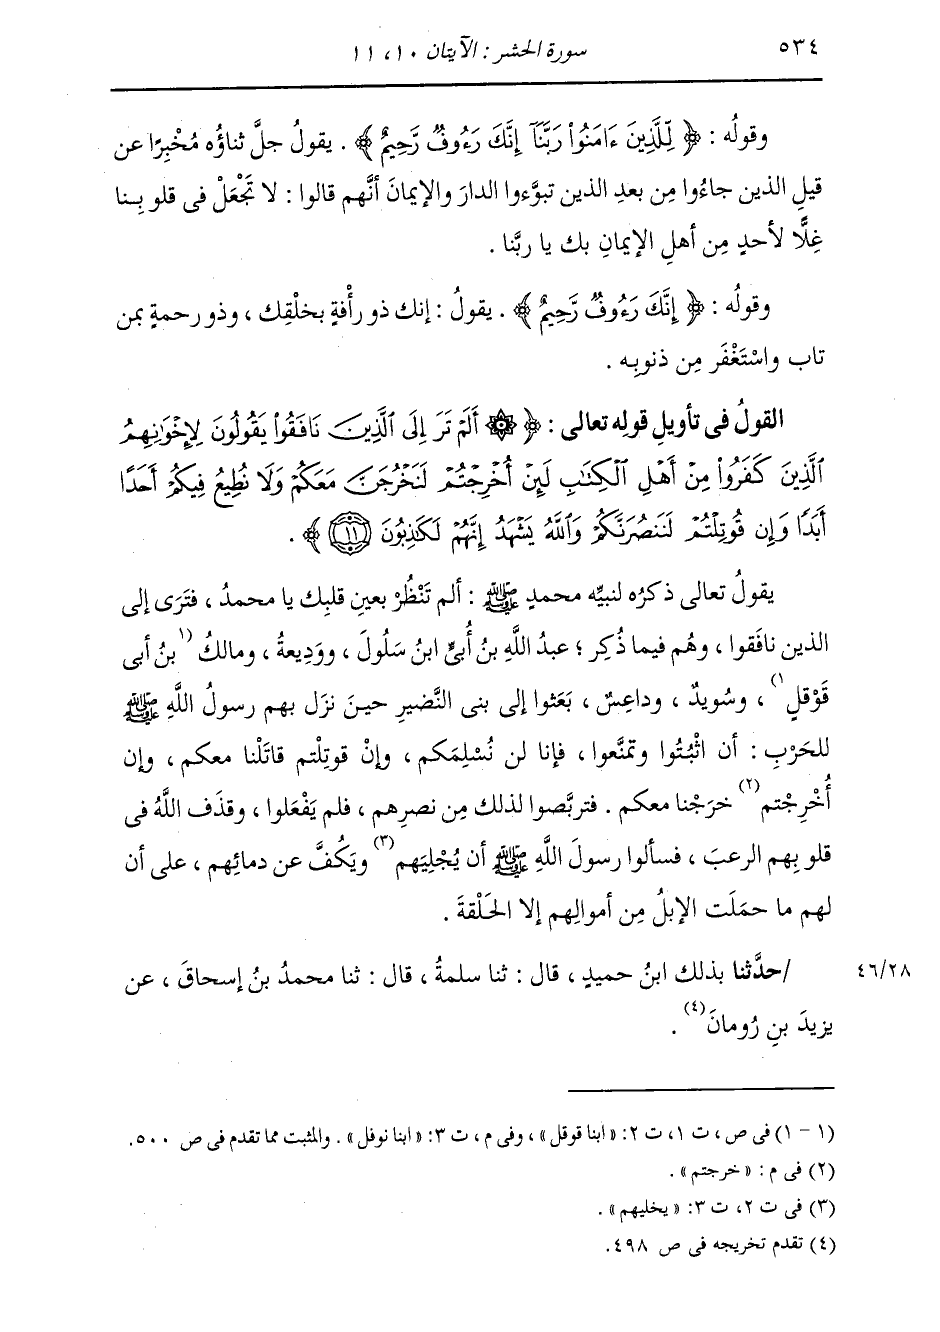 ٥٣٤ سورة الحشر : الآيتان ١٠، ١١
وقولُه : ﴿ لِّلَّذِينَ ءَامَنُوا۟ رَبَّنَآ إِنَّكَ رَءُوفٌ رَّحِيمٌ ﴾ . يقولُ جلَّ ثناؤُه مُخْبِرًا عن
قيلِ الذين جاءُوا مِن بعدِ الذين تبوَّءوا الدارَ والإيمانَ أنَّهم قالوا : لا تَجْعَلْ فى قلوبِنا
غِلًّا لأحدٍ مِن أهلِ الإيمانِ بك يا ربَّنا .
وقولُه : ﴿ إِنَّكَ رَءُوفٌ رَّحِيمٌ ﴾ . يقولُ : إنك ذو رأْفةٍ بخلْقِك ، وذو رحمةٍ بمن
تاب واسْتَغْفَر مِن ذنوبِه .
القولُ فى تأويلِ قولِه تعالى : ﴿ ۞ أَلَمْ تَرَ إِلَى ٱلَّذِينَ نَافَقُوا۟ يَقُولُونَ لِإِخْوَٰنِهِمُ
ٱلَّذِينَ كَفَرُوا۟ مِنْ أَهْلِ ٱلْكِتَٰبِ لَئِنْ أُخْرِجْتُمْ لَنَخْرُجَنَّ مَعَكُمْ وَلَا نُطِيعُ فِيكُمْ أَحَدًا
أَبَدًا وَإِن قُوتِلْتُمْ لَنَنصُرَنَّكُمْ وَٱللَّهُ يَشْهَدُ إِنَّهُمْ لَكَٰذِبُونَ ⁝١١⁝ ﴾ .
يقولُ تعالى ذكرُه لنبيِّه محمدٍ ﷺ : ألم تَنْظُرْ بعينِ قلبِك يا محمدُ ، فتَرَى إلى
الذين نافَقوا ، وهُم فيما ذُكِر ؛ عبدُ اللَّهِ بنُ أُبىٍّ ابنُ سَلُولَ ، ووَدِيعةُ ، ومالكُ (١ بنُ أبى
قَوْقلٍ ١) ، وسُويدٌ ، وداعِسٌ ، بَعَثوا إلى بنى النَّضيرِ حينَ نزَل بهم رسولُ اللَّهِ ﷺ
للحَرْبِ : أن اثْبُتُوا وتمنَّعوا ، فإنا لن نُسْلِمَكم ، وإنْ قوتِلْتم قاتَلْنا معكم ، وإن
أُخْرِجْتم (٢) خرَجْنا معكم . فتربَّصوا لذلك مِن نصرِهم ، فلم يَفْعَلوا ، وقذَف اللَّهُ فى
قلوبِهم الرعبَ ، فسألوا رسولَ اللَّهِ ﷺ أن يُجْلِيَهم (٣) ويَكُفَّ عن دمائِهم ، على أن
لهم ما حمَلَت الإبلُ مِن أموالِهم إلا الحَلْقةَ .
٤٦/٢٨ /حدَّثنا بذلك ابنُ حميدٍ ، قال : ثنا سلمةُ ، قال : ثنا محمدُ بنُ إسحاقَ ، عن
يزيدَ بنِ رُومانَ (٤) .
(١ - ١) فى ص ، ت ١، ت ٢: «ابنا قوقل» ، وفى م ، ت ٣: «ابنا نوفل» . والمثبت مما تقدم فى ص ٥٠٠.
(٢) فى م : «خرجتم» .
(٣) فى ت ٢، ت ٣: «يخليهم» .
(٤) تقدم تخريجه فى ص ٤٩٨.